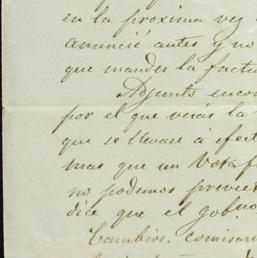 en la proxima vez
anuncié antes y no
que mander la factu
Adjunto encon
por el que verás la
que se llevare á efect
mas que un Vota
no podemos preveer
dice que el gobno
Cambios. Comisari